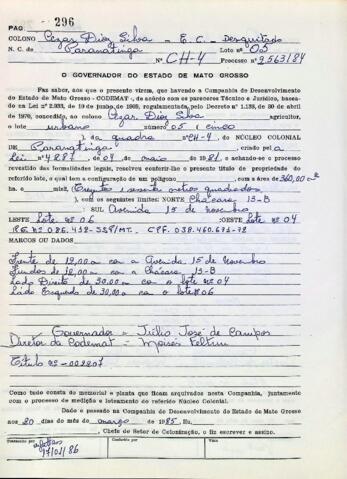 PAG. 296
COLONO Cezar Dias Silva - E. C. - Desquitado
N. C. de Paranatinga Lote nº 05
Nº CH-4 Processo nº 2563/84
O GOVERNADOR DO ESTADO DE MATO GROSSO
Faz saber, aos que o presente virem, que havendo a Companhia de Desenvolvimento
do Estado de Mato Grosso -CODEMAT-, de acôrdo com os pareceres Técnico e Jurídico, basea-
do na Lei nº 2.933, de 19 de junho de 1969, regulamentada, pelo Decreto nº 1.138, de 30 de abril
de 1970, concedido ao colono Cezar Dias Silva agricultor,
o lote urbano nº 05 ( cinco
) da quadra nº CH-4 do NÚCLEO COLONIAL
DE Paranatinga, criado pela
Lei nº 4887 de 04 de maio de 1981 e achando-se o processo
revestido das formalidades legais, resolveu conferir-lhe o presente título de propriedade do
referido lote, o qual tem a configuração de um polígono com a área de 360,00 m2
ha o metros quadrados
), com os seguintes limites: NORTE Chácara 13-B
SUL Avenida 15 de novembro
LESTE Lote nº 06 OESTE Lote nº 04
CPF. 038.460.671-72
MARCOS OU DADOS
Frente de 12,00m com a Avenida 15 de Novembro
Fundos de 12,00m com a Chácara 13-B
Lado Direito de 30,00m com o lote nº 04
Lado Esquerdo de 30,00m com o lote nº 06
Governador = Júlio José de Campos
Diretor da Codemat = Moisés Feltrin
Título nº - 002207
Como tudo consta do memorial e planta que ficam arquivados nesta Companhia, juntamente
com o processo de medição e loteamento do referido Núcleo Colonial.
Dado e passado na Companhia de Desenvolvimento do Estado de Mato Grosso
aos 20 dias do mês de março de 1985. Eu,
, Chefe do Setor de Colonização, o fiz escrever e assino.
Datilografado por Conferido por Visto
17/01/86